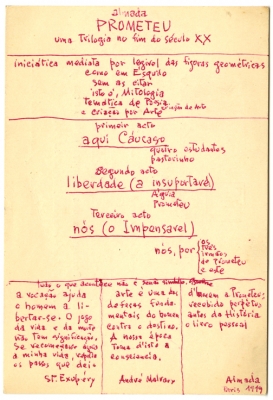 almada
PROMETEU
uma Trilogia no fim do século XX
iniciática mediata por legível das figuras geométricas
como em Esquilo
sem as citar
isto é, Mitologia
Temática de Poesia
e criação por Arte
primeiro acto
aqui Cáucaso
quatro estudantes
pastorinho
Segundo acto
liberdade (a insuportável)
Águia
Prometeu
Terceiro acto
nós (o Impensável)
nós, por
os
três
de Prometeu
e este
tudo o que acontece não é
a vocação ajuda
o homem a li-
bertar-se. O jogo
da vida e da morte
não Tem significação.
Se recomeçar
a minha vida,
os passos que dei
St. Exupéry
arte é uma das
defesas funda-
mentais do homem
contra o destino.
A nossa época
Toma disto a
consciência.
André Malraux
Prometeu,
recebido
antes da História
o livro pessoal
Almada